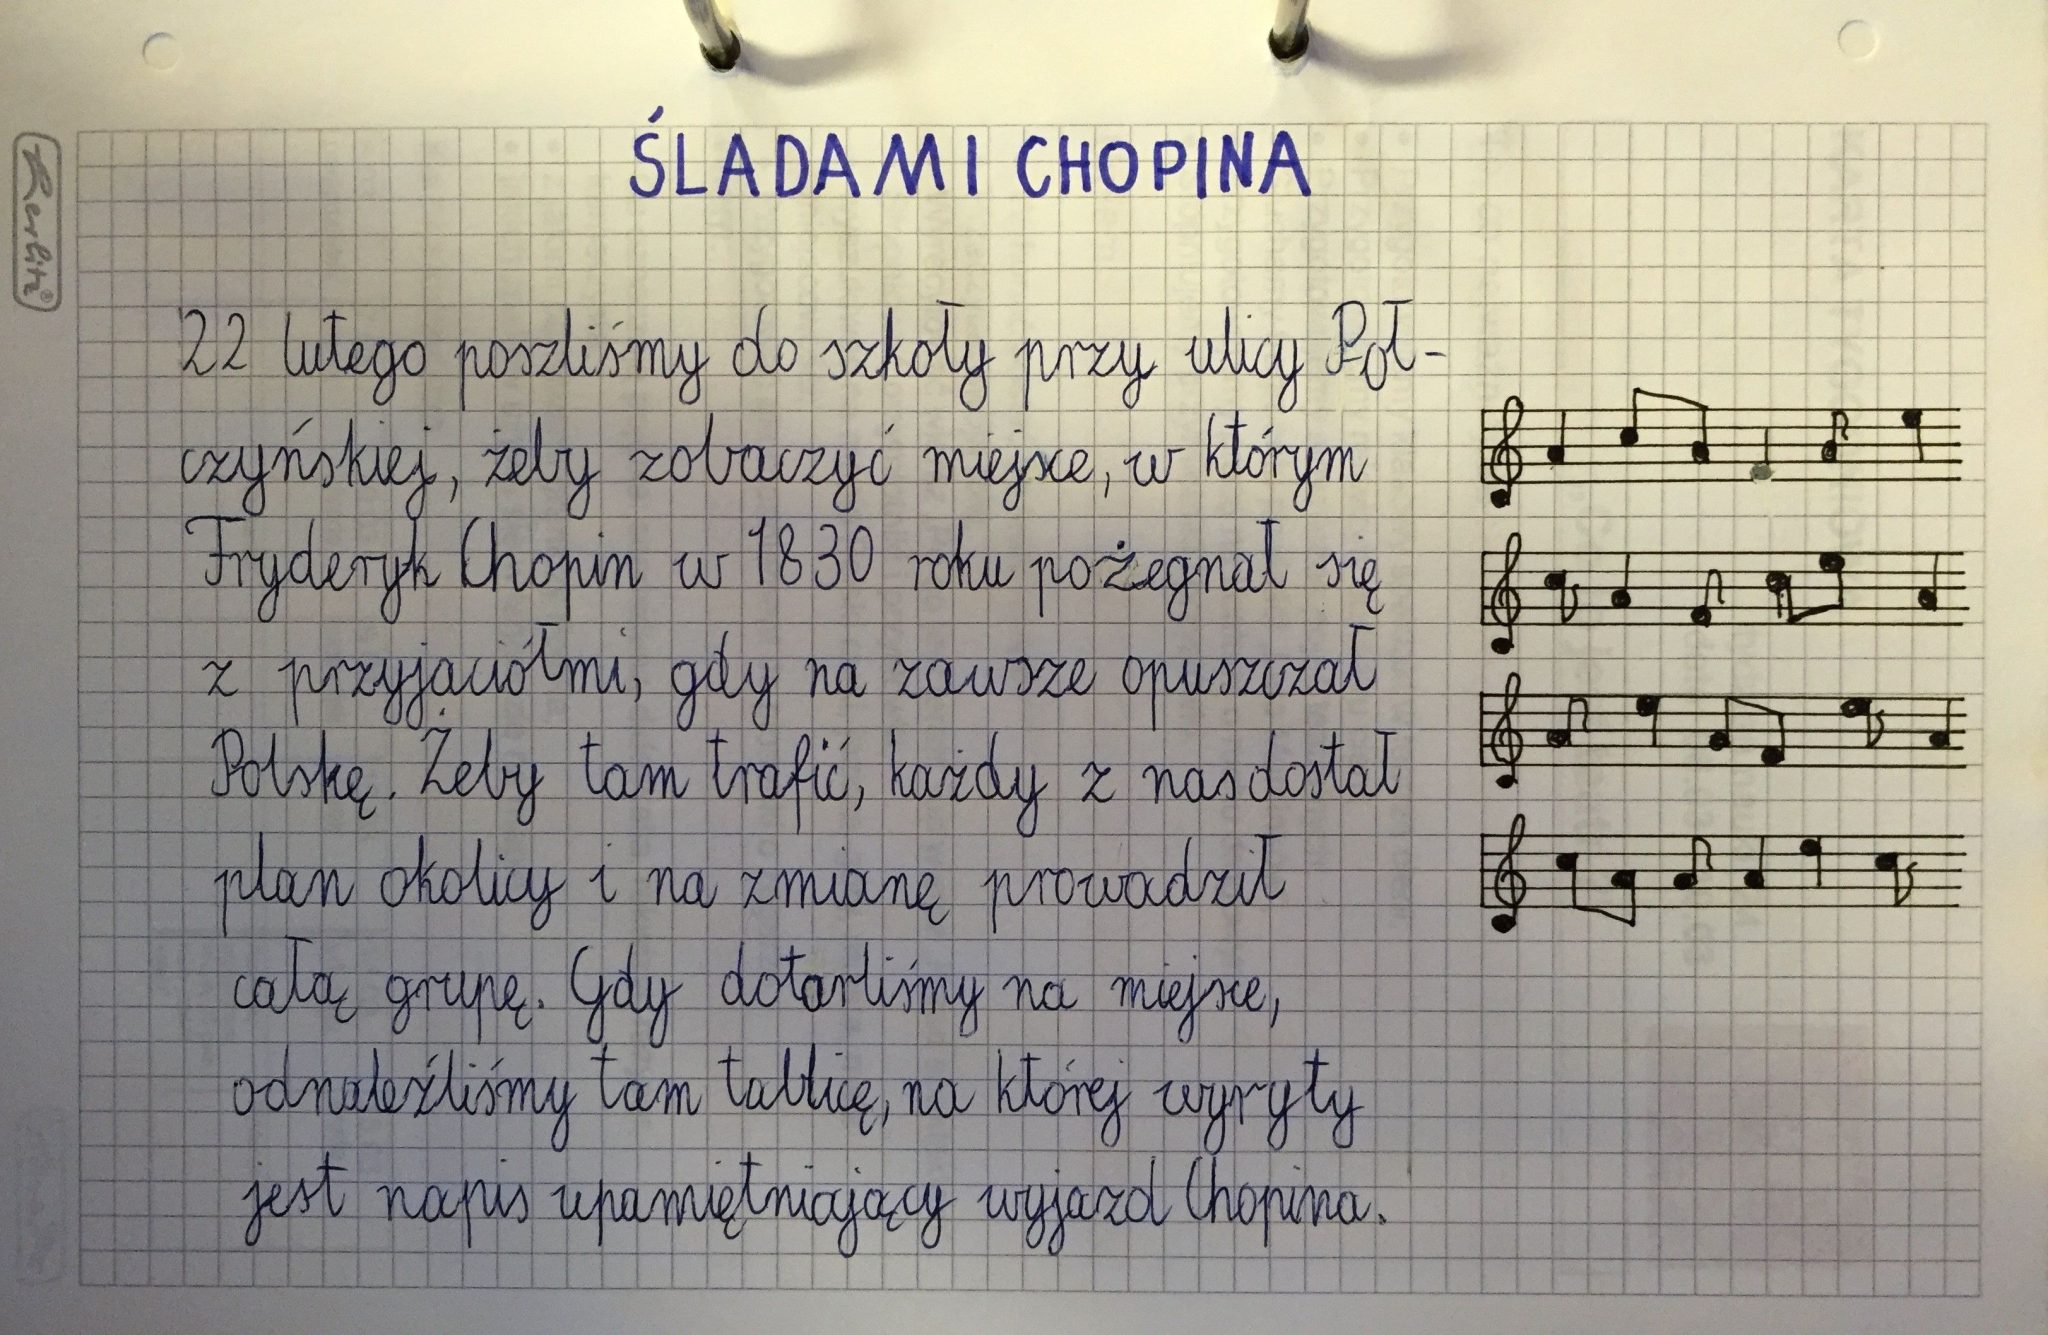 ŚLADAMI CHOPINA
Herlitz®
22 lutego poszliśmy do szkoły przy ulicy Poł-
czyńskiej, żeby zobaczyć miejsce, w którym
Fryderyk Chopin w 1830 roku pożegnał się
z przyjaciółmi, gdy na zawsze opuszczał
Polskę. Żeby tam trafić, każdy z nas dostał
plan okolicy i na zmianę prowadził
całą grupę. Gdy dotarliśmy na miejsce,
odnaleźliśmy tam tablicę, na której wyryty
jest napis upamiętniający wyjazd Chopina.